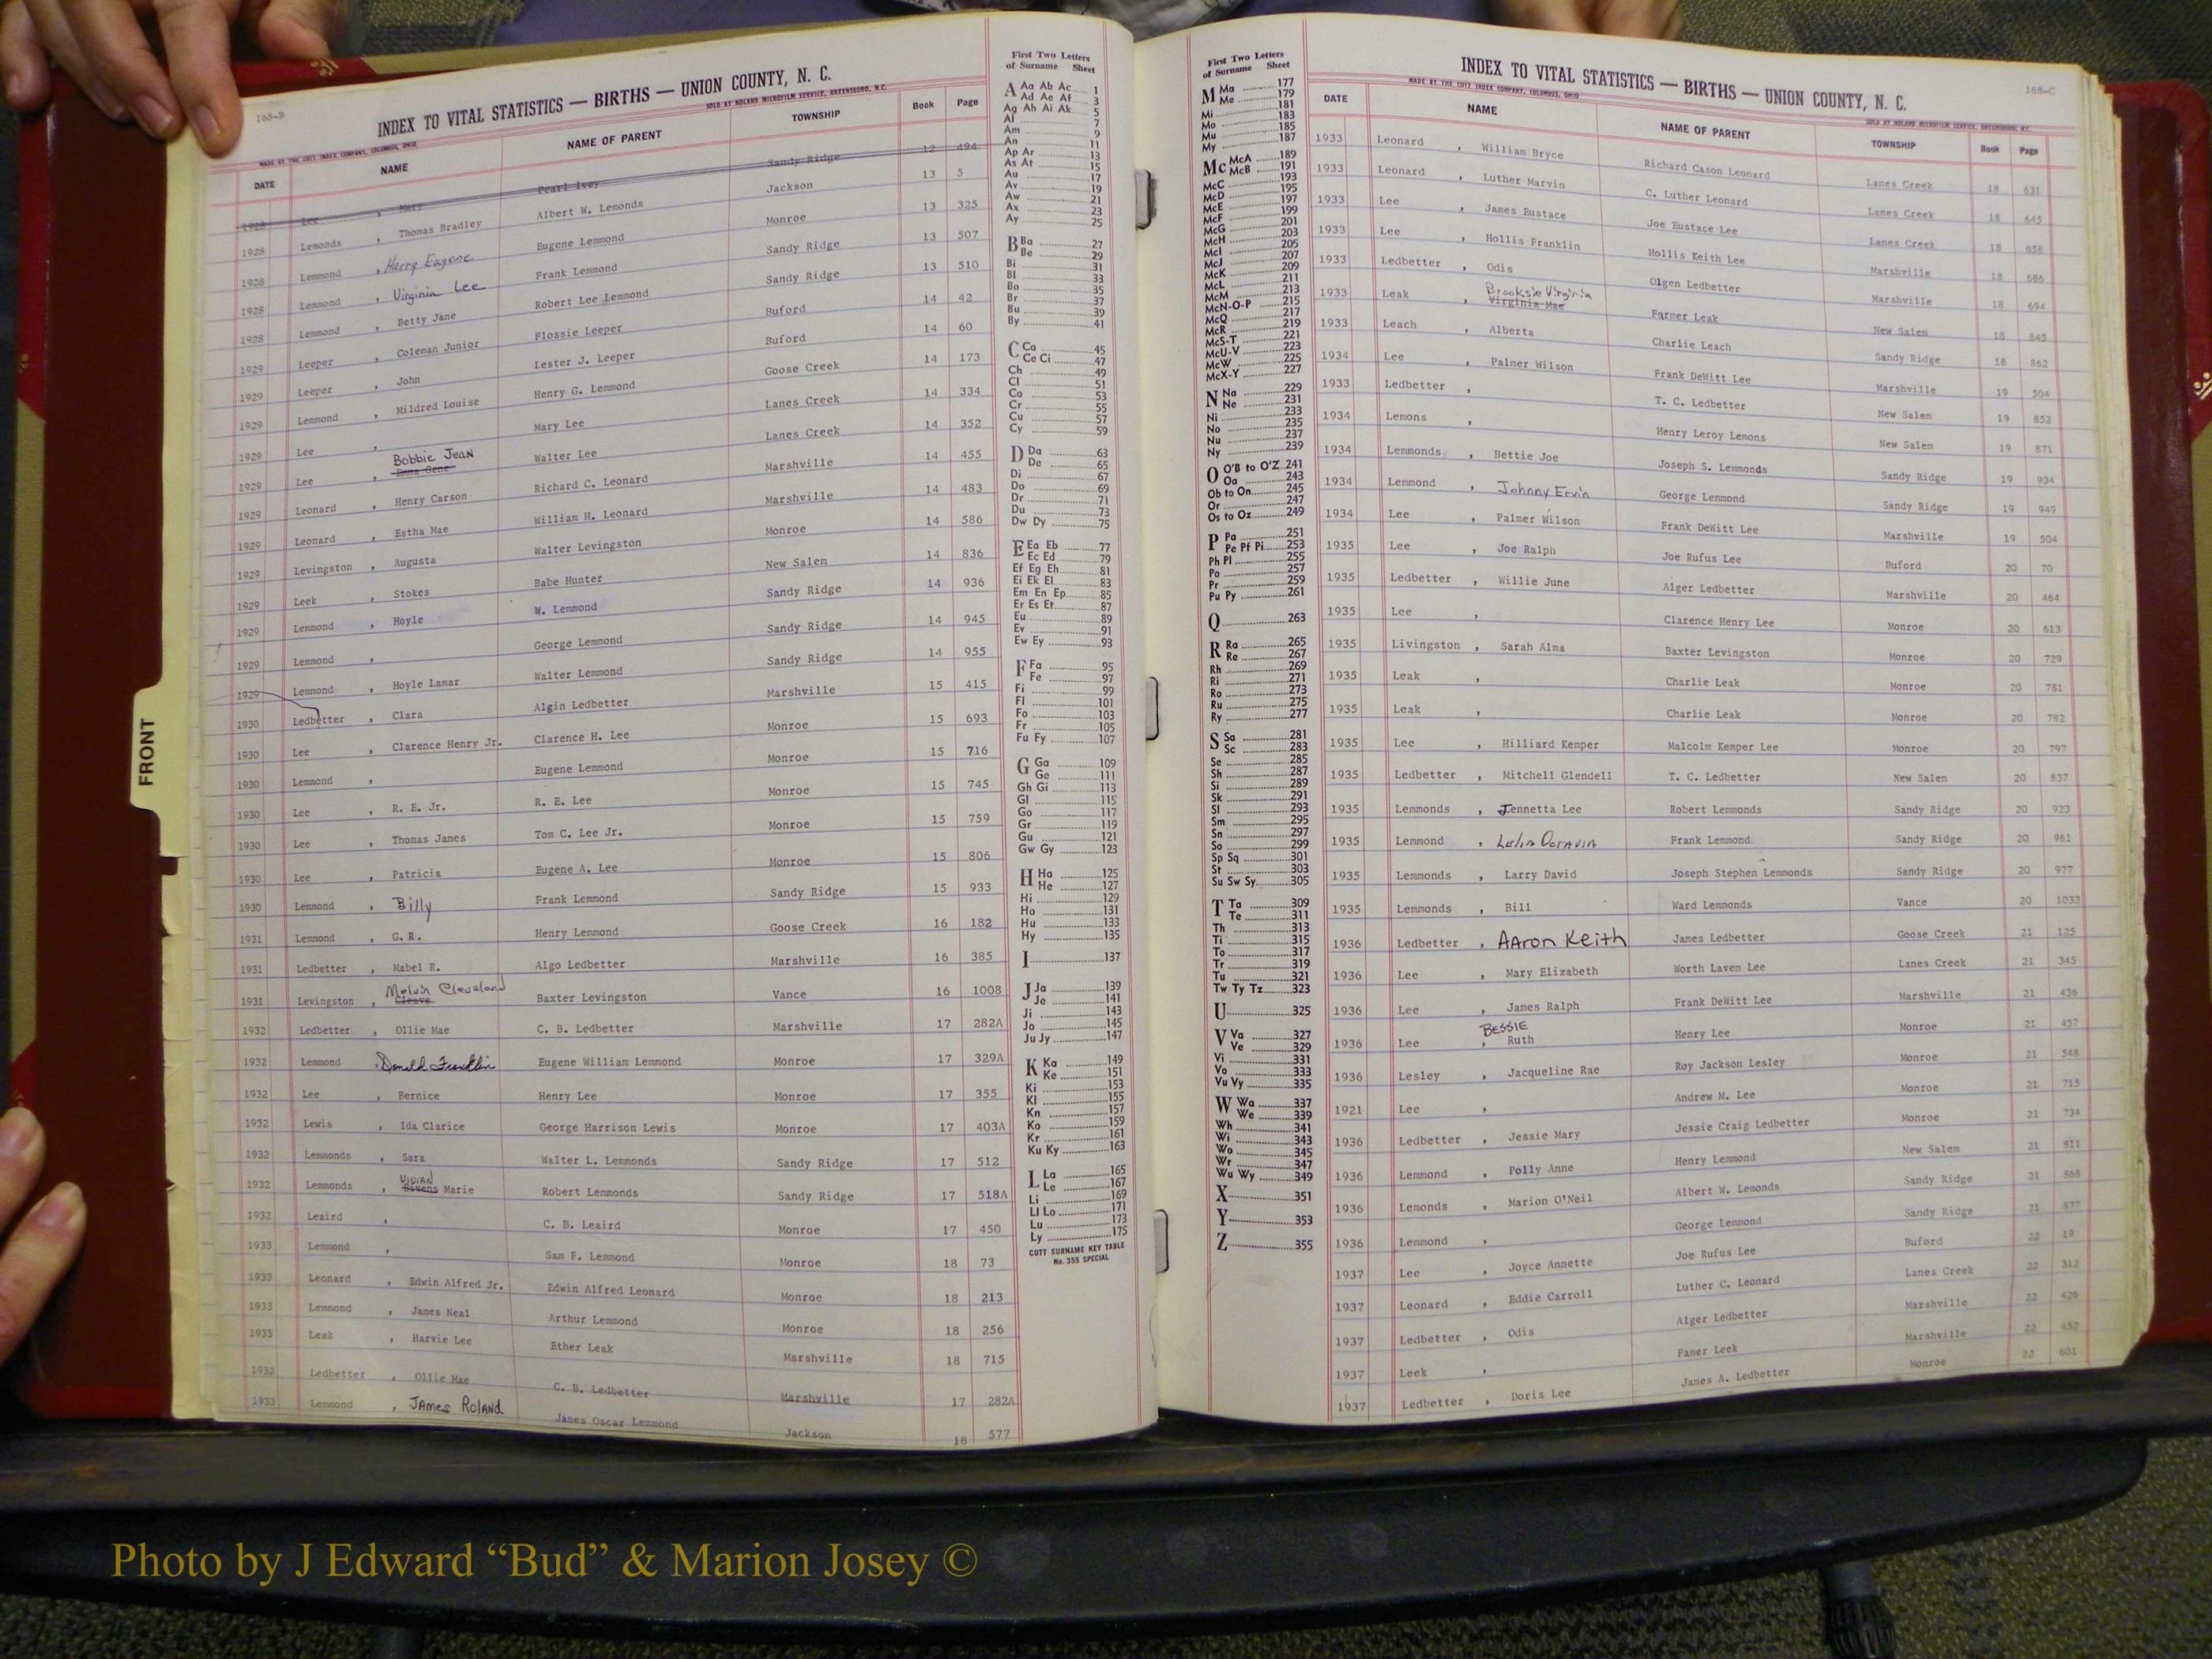 168-B
INDEX TO VITAL STATISTICS — BIRTHS — UNION COUNTY, N. C.
MADE BY THE COTT INDEX COMPANY, COLUMBUS, OHIO SOLD BY NOLAND MICROFILM SERVICE, GREENSBORO, N.C.
DATE NAME NAME OF PARENT TOWNSHIP Book Page
1928 Lee , Mary Pearl Ivey Sandy Ridge 12 494
1928 Lemonds , Thomas Bradley Albert W. Lemonds Jackson 13 5
1928 Lemmond , Harry Eugene Eugene Lemmond Monroe 13 325
1928 Lemmond , Virginia Lee Frank Lemmond Sandy Ridge 13 507
1928 Lemmond , Betty Jane Robert Lee Lemmond Sandy Ridge 13 510
1929 Leeper , Coleman Junior Flossie Leeper Buford 14 42
1929 Leeper , John Lester J. Leeper Buford 14 60
1929 Lemmond , Mildred Louise Henry G. Lemmond Goose Creek 14 173
1929 Lee , Mary Lee Lanes Creek 14 334
1929 Lee , Bobbie Jean Walter Lee Lanes Creek 14 352
1929 Leonard , Henry Carson Richard C. Leonard Marshville 14 455
1929 Leonard , Estha Mae William H. Leonard Marshville 14 483
1929 Levingston , Augusta Walter Levingston Monroe 14 586
1929 Leek , Stokes Babe Hunter New Salem 14 836
1929 Lemmond , Hoyle W. Lemmond Sandy Ridge 14 936
1929 Lemmond , George Lemmond Sandy Ridge 14 945
1929 Lemmond , Hoyle Lamar Walter Lemmond Sandy Ridge 14 955
1930 Ledbetter , Clara Algin Ledbetter Marshville 15 415
1930 Lee , Clarence Henry Jr. Clarence H. Lee Monroe 15 693
1930 Lemmond , Eugene Lemmond Monroe 15 716
1930 Lee , R. E. Jr. R. E. Lee Monroe 15 745
1930 Lee , Thomas James Tom C. Lee Jr. Monroe 15 759
1930 Lee , Patricia Eugene A. Lee Monroe 15 806
1930 Lemmond , Billy Frank Lemmond Sandy Ridge 15 933
1931 Lemmond , G. R. Henry Lemmond Goose Creek 16 182
1931 Ledbetter , Mabel R. Algo Ledbetter Marshville 16 385
1931 Levingston , Melvin Cleveland Cleave Baxter Levingston Vance 16 1008
1932 Ledbetter , Ollie Mae C. B. Ledbetter Marshville 17 282A
1932 Lemmond , Donald Franklin Eugene William Lemmond Monroe 17 329A
1932 Lee , Bernice Henry Lee Monroe 17 355
1932 Lewis , Ida Clarice George Harrison Lewis Monroe 17 403A
1932 Lemmonds , Sara Walter L. Lemmonds Sandy Ridge 17 512
1932 Lemmonds , VIVIAN Bivens Marie Robert Lemmonds Sandy Ridge 17 518A
1932 Leaird , C. B. Leaird Monroe 17 450
1933 Lemmond , Sam F. Lemmond Monroe 18 73
1933 Leonard , Edwin Alfred Jr. Edwin Alfred Leonard Monroe 18 213
1933 Lemmond , James Neal Arthur Lemmond Monroe 18 256
1933 Leak , Harvie Lee Ether Leak Marshville 18 715
1932 Ledbetter , Ollie Mae C. B. Ledbetter Marshville 17 282A
1933 Lemmond , JAmes RolAnd James Oscar Lemmond Jackson 18 577
First Two Letters of Surname Sheet
A Aa Ab Ac 1
Ad Ae Af 3
Ag Ah Ai Ak 5
Al 7
Am 9
An 11
Ap Ar 13
As At 15
Au 17
Av 19
Aw 21
Ax 23
Ay 25
B Ba 27
Be 29
Bi 31
Bl 33
Bo 35
Br 37
Bu 39
By 41
C Ca 45
Ce Ci 47
Ch 49
Cl 51
Co 53
Cr 55
Cu 57
Cy 59
D Da 63
De 65
Di 67
Do 69
Dr 71
Du 73
Dw Dy 75
E Ea Eb 77
Ec Ed 79
Ef Eg Eh 81
Ei Ek El 83
Em En Ep 85
Er Es Et 87
Eu 89
Ev 91
Ew Ey 93
F Fa 95
Fe 97
Fi 99
Fl 101
Fo 103
Fr 105
Fu Fy 107
G Ga 109
Ge 111
Gh Gi 113
Gl 115
Go 117
Gr 119
Gu 121
Gw Gy 123
H Ha 125
He 127
Hi 129
Ho 131
Hu 133
Hy 135
I 137
J Ja 139
Je 141
Ji 143
Jo 145
Ju Jy 147
K Ka 149
Ke 151
Ki 153
Kl 155
Kn 157
Ko 159
Kr 161
Ku Ky 163
L La 165
Le 167
Li 169
Ll Lo 171
Lu 173
Ly 175
COTT SURNAME KEY TABLE
No. 355 SPECIAL
First Two Letters of Surname Sheet
M Ma 177
Me 179
Mi 181
Mo 183
Mu 185
My 187
Mc McA 189
McB 191
McC 193
McD 195
McE 197
McF 199
McG 201
McH 203
McI 205
McJ 207
McK 209
McL 211
McM 213
McN-O-P 215
McQ 217
McR 219
McS-T 221
McU-V 223
McW 225
McX-Y 227
N Na 229
Ne 231
Ni 233
No 235
Nu 237
Ny 239
O O'B to O'Z 241
Oa 243
Ob to On 245
Or 247
Os to Oz 249
P Pa 251
Pe Pf Pi 253
Ph Pl 255
Po 257
Pr 259
Pu Py 261
Q 263
R Ra 265
Re 267
Rh 269
Ri 271
Ro 273
Ru 275
Ry 277
S Sa 281
Sc 283
Se 285
Sh 287
Si 289
Sk 291
Sl 293
Sm 295
Sn 297
So 299
Sp Sq 301
St 303
Su Sw Sy 305
T Ta 309
Te 311
Th 313
Ti 315
To 317
Tr 319
Tu 321
Tw Ty Tz 323
U 325
V Va 327
Ve 329
Vi 331
Vo 333
Vu Vy 335
W Wa 337
We 339
Wh 341
Wi 343
Wo 345
Wr 347
Wu Wy 349
X 351
Y 353
Z 355
168-C
INDEX TO VITAL STATISTICS — BIRTHS — UNION COUNTY, N. C.
MADE BY THE COTT INDEX COMPANY, COLUMBUS, OHIO SOLD BY NOLAND MICROFILM SERVICE, GREENSBORO, N.C.
DATE NAME NAME OF PARENT TOWNSHIP Book Page
1933 Leonard , William Bryce Richard Cason Leonard Lanes Creek 18 631
1933 Leonard , Luther Marvin C. Luther Leonard Lanes Creek 18 645
1933 Lee , James Eustace Joe Eustace Lee Lanes Creek 18 658
1933 Lee , Hollis Franklin Hollis Keith Lee Marshville 18 686
1933 Ledbetter , Odis Olgen Ledbetter Marshville 18 694
1933 Leak , Brooksie Virginia Virginia Mae Farmer Leak New Salem 18 845
1933 Leach , Alberta Charlie Leach Sandy Ridge 18 862
1934 Lee , Palmer Wilson Frank DeWitt Lee Marshville 19 504
1933 Ledbetter , T. C. Ledbetter New Salem 19 852
1934 Lemons , Henry Leroy Lemons New Salem 19 871
1934 Lemmonds , Bettie Joe Joseph S. Lemmonds Sandy Ridge 19 934
1934 Lemmond , Johnny Ervin George Lemmond Sandy Ridge 19 949
1934 Lee , Palmer Wilson Frank DeWitt Lee Marshville 19 504
1935 Lee , Joe Ralph Joe Rufus Lee Buford 20 70
1935 Ledbetter , Willie June Alger Ledbetter Marshville 20 464
1935 Lee , Clarence Henry Lee Monroe 20 613
1935 Livingston , Sarah Alma Baxter Levingston Monroe 20 729
1935 Leak , Charlie Leak Monroe 20 781
1935 Leak , Charlie Leak Monroe 20 782
1935 Lee , Hilliard Kemper Malcolm Kemper Lee Monroe 20 797
1935 Ledbetter , Mitchell Glendell T. C. Ledbetter New Salem 20 837
1935 Lemmonds , Jennetta Lee Robert Lemmonds Sandy Ridge 20 923
1935 Lemmond , Lelia Octavia Frank Lemmond Sandy Ridge 20 961
1935 Lemmonds , Larry David Joseph Stephen Lemmonds Sandy Ridge 20 977
1935 Lemmonds , Bill Ward Lemmonds Vance 20 1033
1936 Ledbetter , AAron Keith James Ledbetter Goose Creek 21 125
1936 Lee , Mary Elizabeth Worth Laven Lee Lanes Creek 21 345
1936 Lee , James Ralph Frank DeWitt Lee Marshville 21 436
1936 Lee , BESSIE Ruth Henry Lee Monroe 21 457
1936 Lesley , Jacqueline Rae Roy Jackson Lesley Monroe 21 548
1921 Lee , Andrew M. Lee Monroe 21 715
1936 Ledbetter , Jessie Mary Jessie Craig Ledbetter Monroe 21 734
1936 Lemmond , Polly Anne Henry Lemmond New Salem 21 811
1936 Lemonds , Marion O'Neil Albert W. Lemonds Sandy Ridge 21 868
1936 Lemmond , George Lemmond Sandy Ridge 21 877
1937 Lee , Joyce Annette Joe Rufus Lee Buford 22 19
1937 Leonard , Eddie Carroll Luther C. Leonard Lanes Creek 22 312
1937 Ledbetter , Odis Alger Ledbetter Marshville 22 426
1937 Leek , Famer Leek Marshville 22 452
1937 Ledbetter , Doris Lee James A. Ledbetter Monroe 22 601
FRONT
Photo by J Edward “Bud” & Marion Josey ©